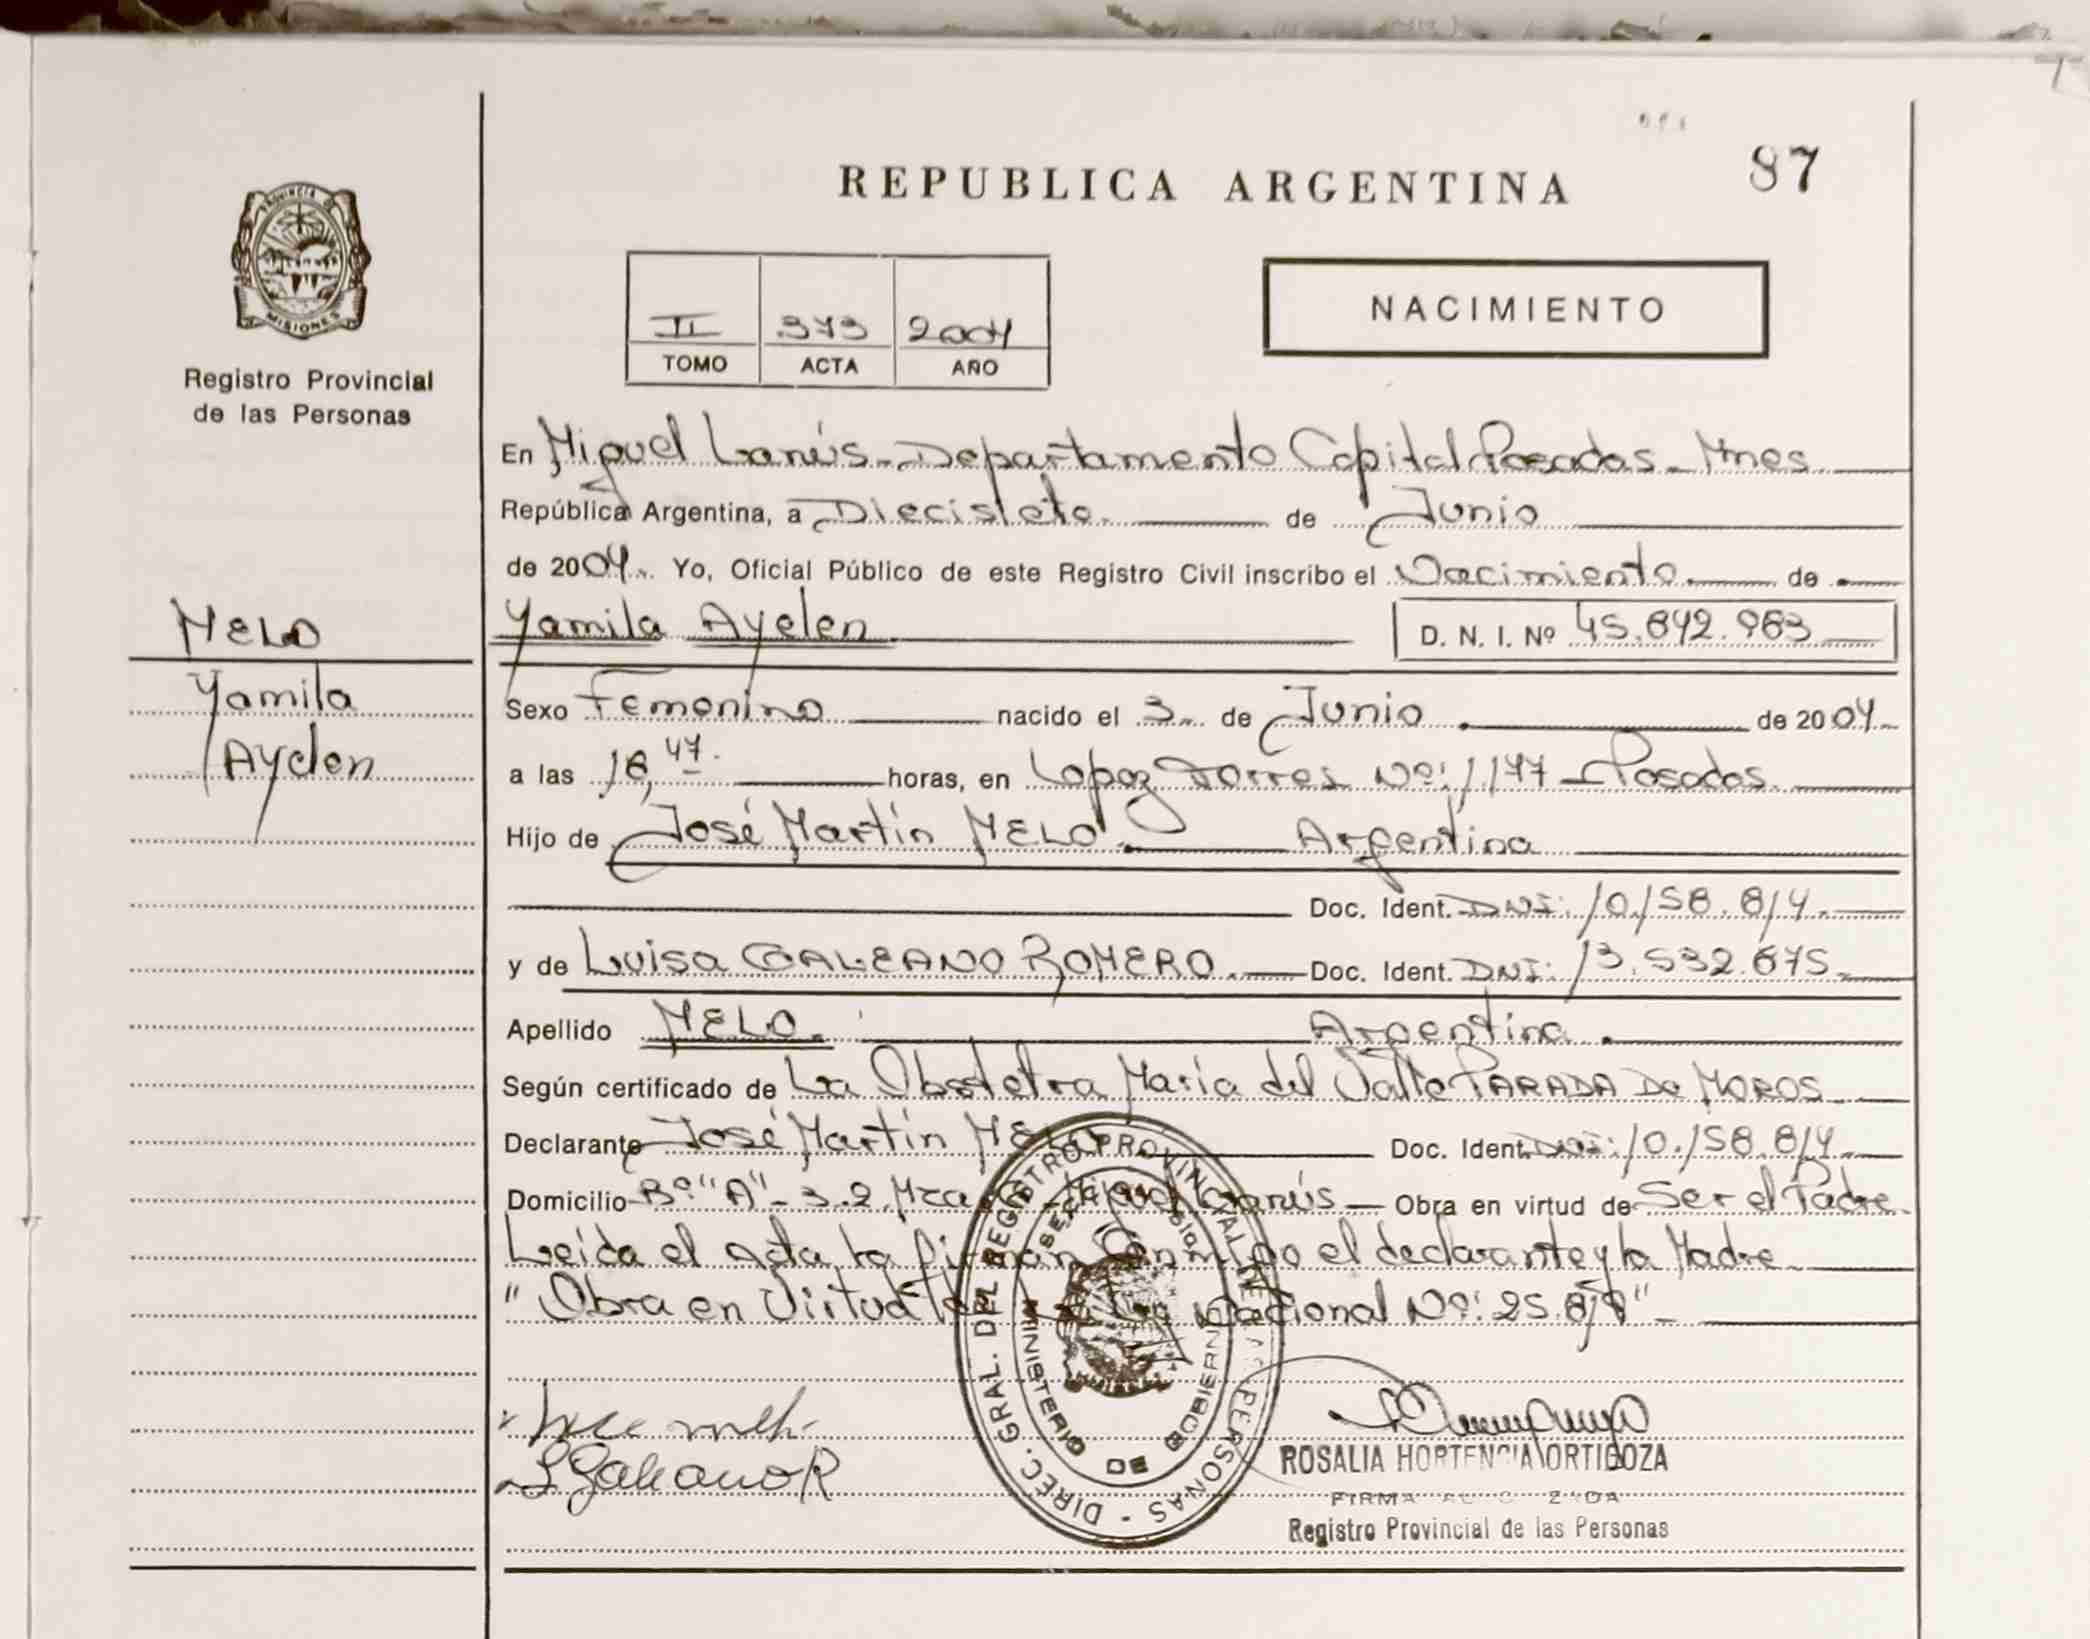 87
REPUBLICA ARGENTINA
PROVINCIA DE
MISIONES
Registro Provincial
de las Personas
II 373 2004
TOMO ACTA AÑO
NACIMIENTO
En Miguel Lanús - Departamento Capital Posadas - Mnes
República Argentina, a Diecisiete de Junio
de 2004. Yo, Oficial Público de este Registro Civil inscribo el Nacimiento de
MELO
Yamila Ayelen
Yamila Ayelen D. N. I. Nº 45.842.983
Sexo Femenino nacido el 3 de Junio de 2004
a las 18,47 horas, en Lopez Torres Nº: 1177 - Posadas
Hijo de José Martín MELO. Argentina
Doc. Ident. DNI: 10.158.814.
y de Luisa GALEANO ROMERO. Doc. Ident. DNI: 13.532.675.
Apellido MELO. Argentina.
Según certificado de La Obstetra María del Valle PARADA De MOROS
Declarante José Martín MELO Doc. Ident. DNI: 10.158.814.
Domicilio Bº "A" - 3.2. Mza Miguel Lanús - Obra en virtud de Ser el Padre
Leída el Acta la firman Conmigo el declarante y la Madre
"Obra en Virtud Nacional Nº: 25.819" -
L Galeano R
DIREC. GRAL. DEL REGISTRO PROVINCIAL DE LAS PERSONAS -
MINISTERIO DE GOBIERNO
ROSALIA HORTENCIA ORTIGOZA
FIRMA AUTORIZADA
Registro Provincial de las Personas